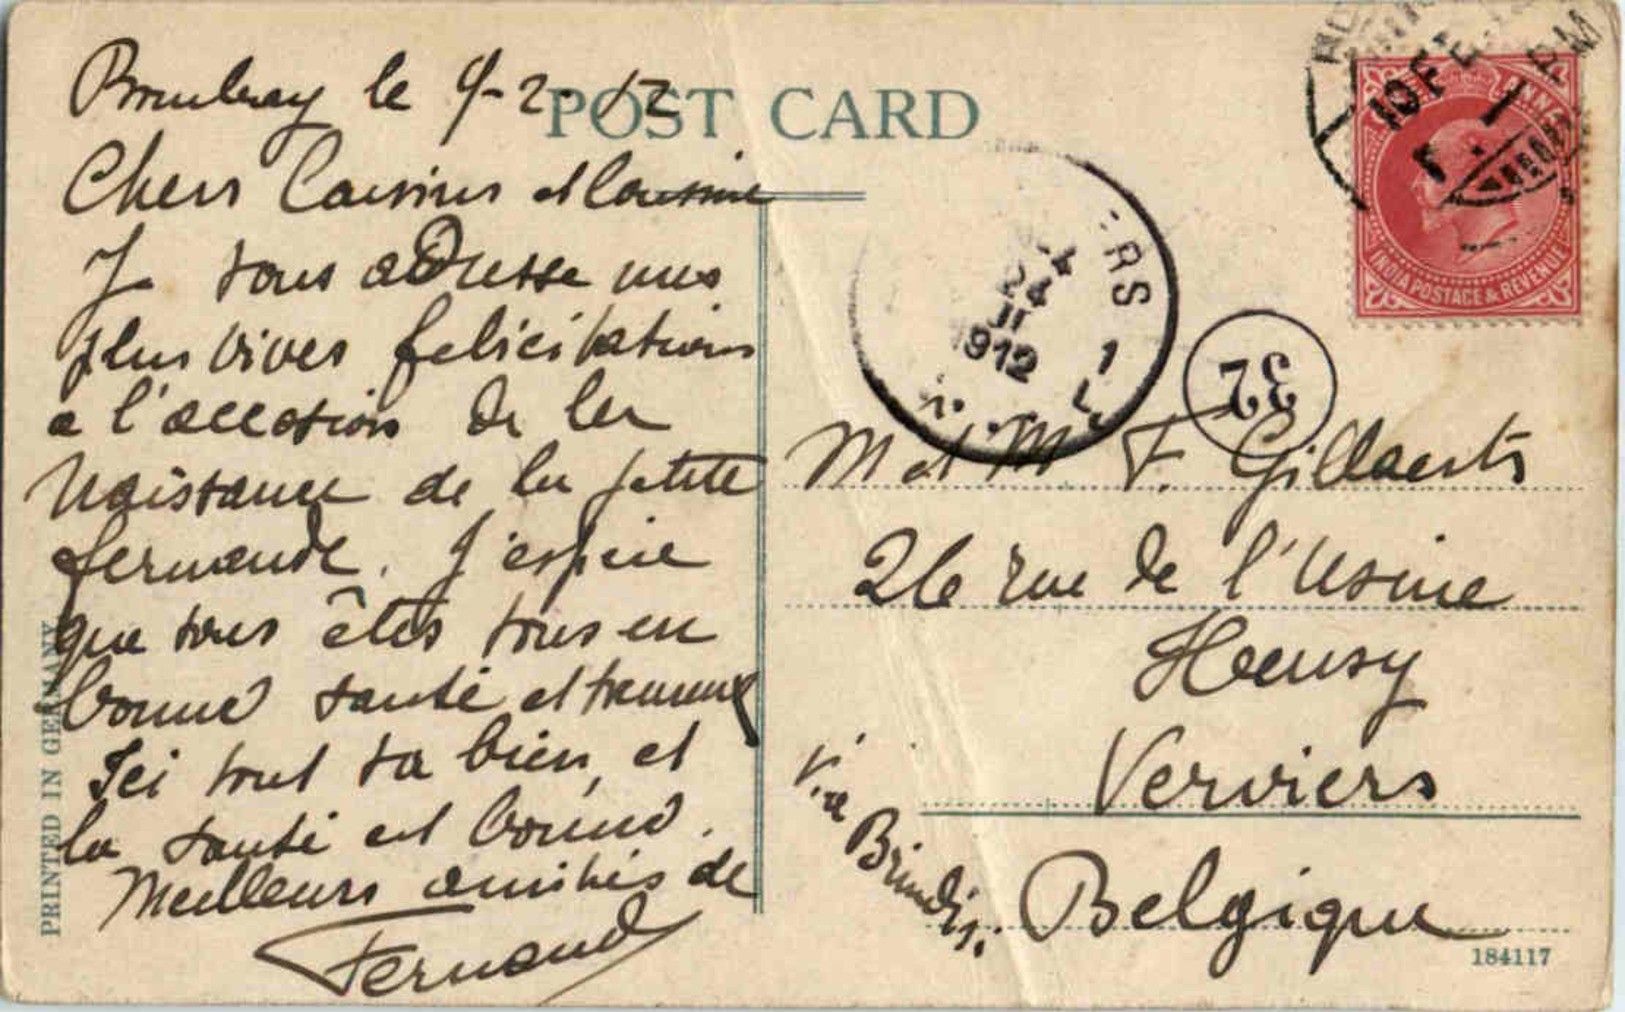 Bombay le 9-2-12
POST CARD
Chers Cousins et Cousine
Je vous adresse mes
plus vives felicitations
a l'occasion de la
Naissance de la petite
fernande. J'espère
que vous êtes tous en
bonne santé et
Ici tout va bien, et
la santé est bonne.
Meilleurs amitiés de
Fernand
PRINTED IN GERMANY
10 FE
1
PM
ANNA
INDIA POSTAGE & REVENUE
ERS 1
24
II
1912
32
M et M F. Gillaerts
26 rue de l'Usine
Heusy
Verviers
Via Brindisi
Belgique
184117